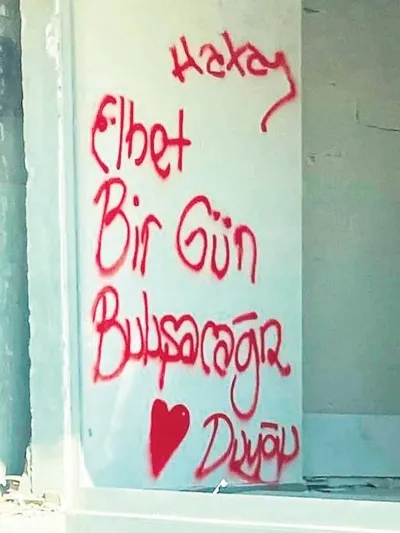 Hatay
Elbet
Bir Gün
Buluşacağız